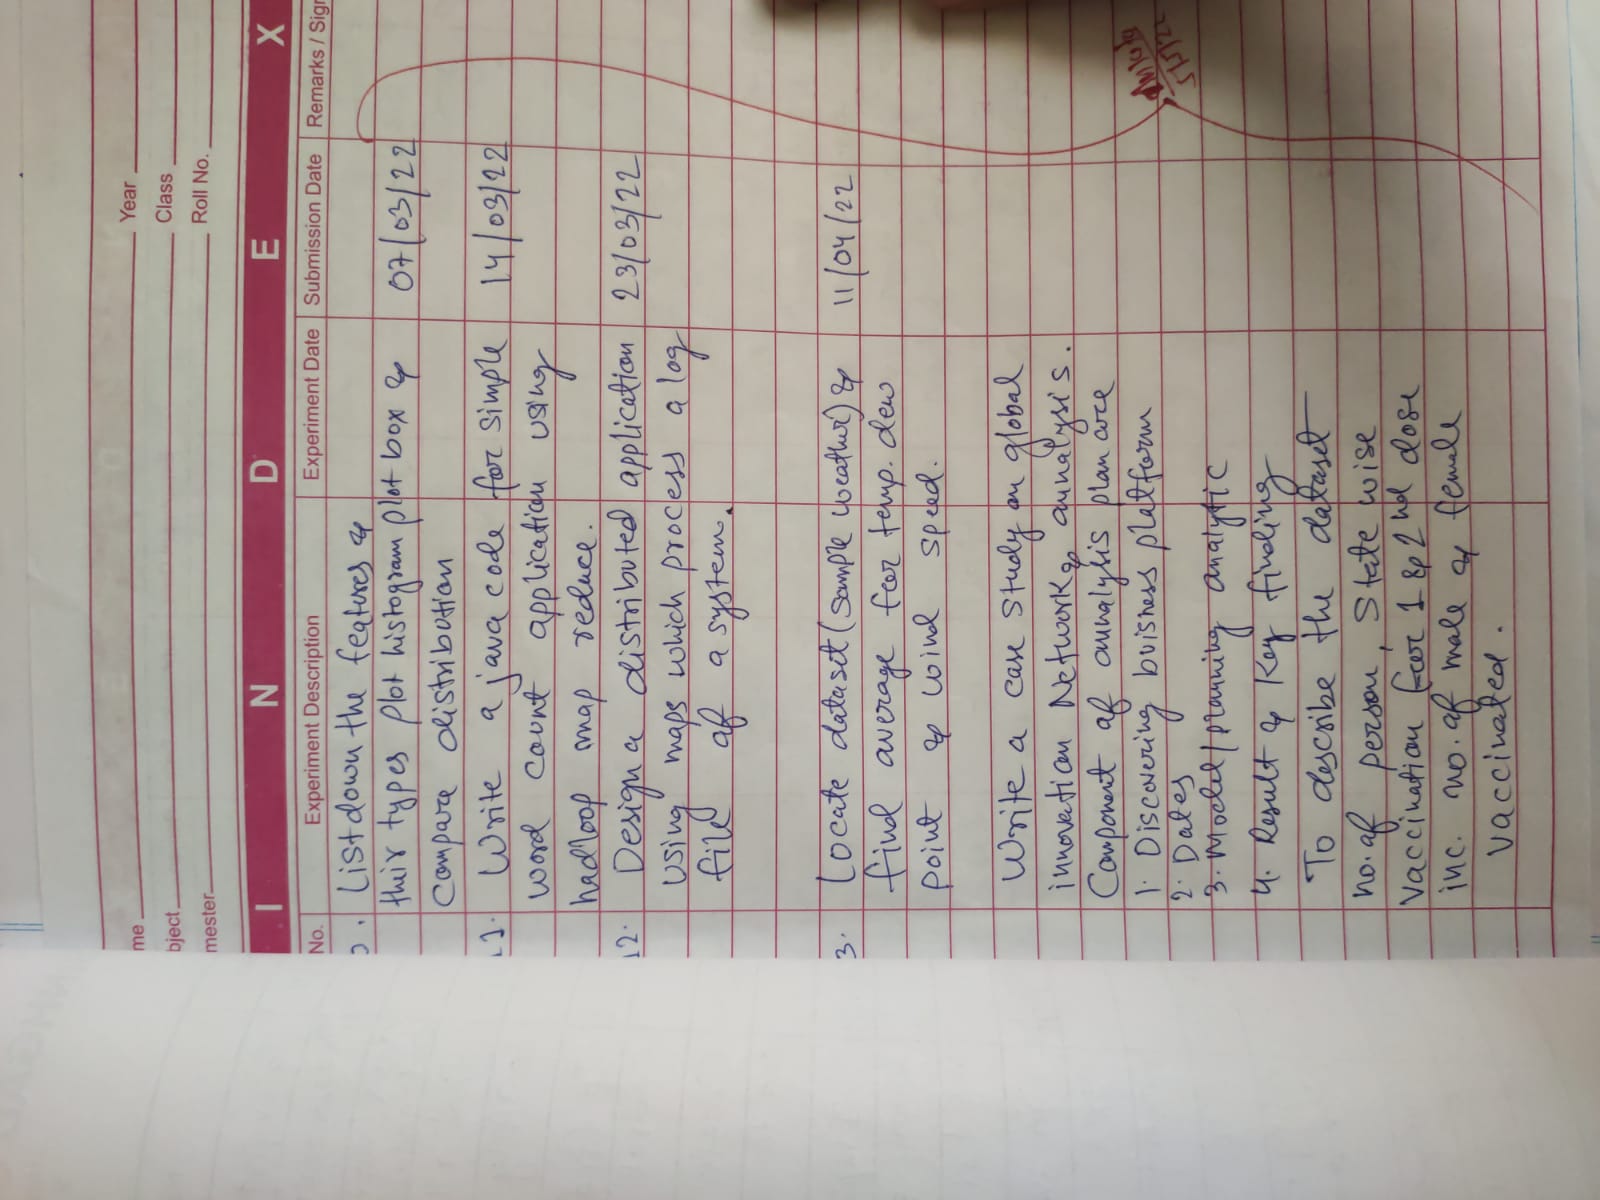 me Year
bject Class
mester Roll No.
I N D E X
No. Experiment Description Experiment Date Submission Date Remarks / Sign
List down the features &
their types plot histogram plot box & 07/03/22
Compare distribution
11. Write a java code for simple 14/03/22
word count application using
hadloop map reduce.
12. Design a distributed application 23/03/22
using maps which process a log
file of a system.
3. Locate dataset (Sample weather) & 11/04/22
find average for temp. dew
point & wind speed.
Write a case study on global
innovation Network & annalysis.
Component of annalysis plan are
1. Discovering buisness platform
2. Dates
3. Model/planning analytic
4. Result & Key finding
To describe the dataset
no. of person, State wise
Vaccination for 1 & 2 nd dose
inc. no. of male & female
vaccinated.
5/5/22